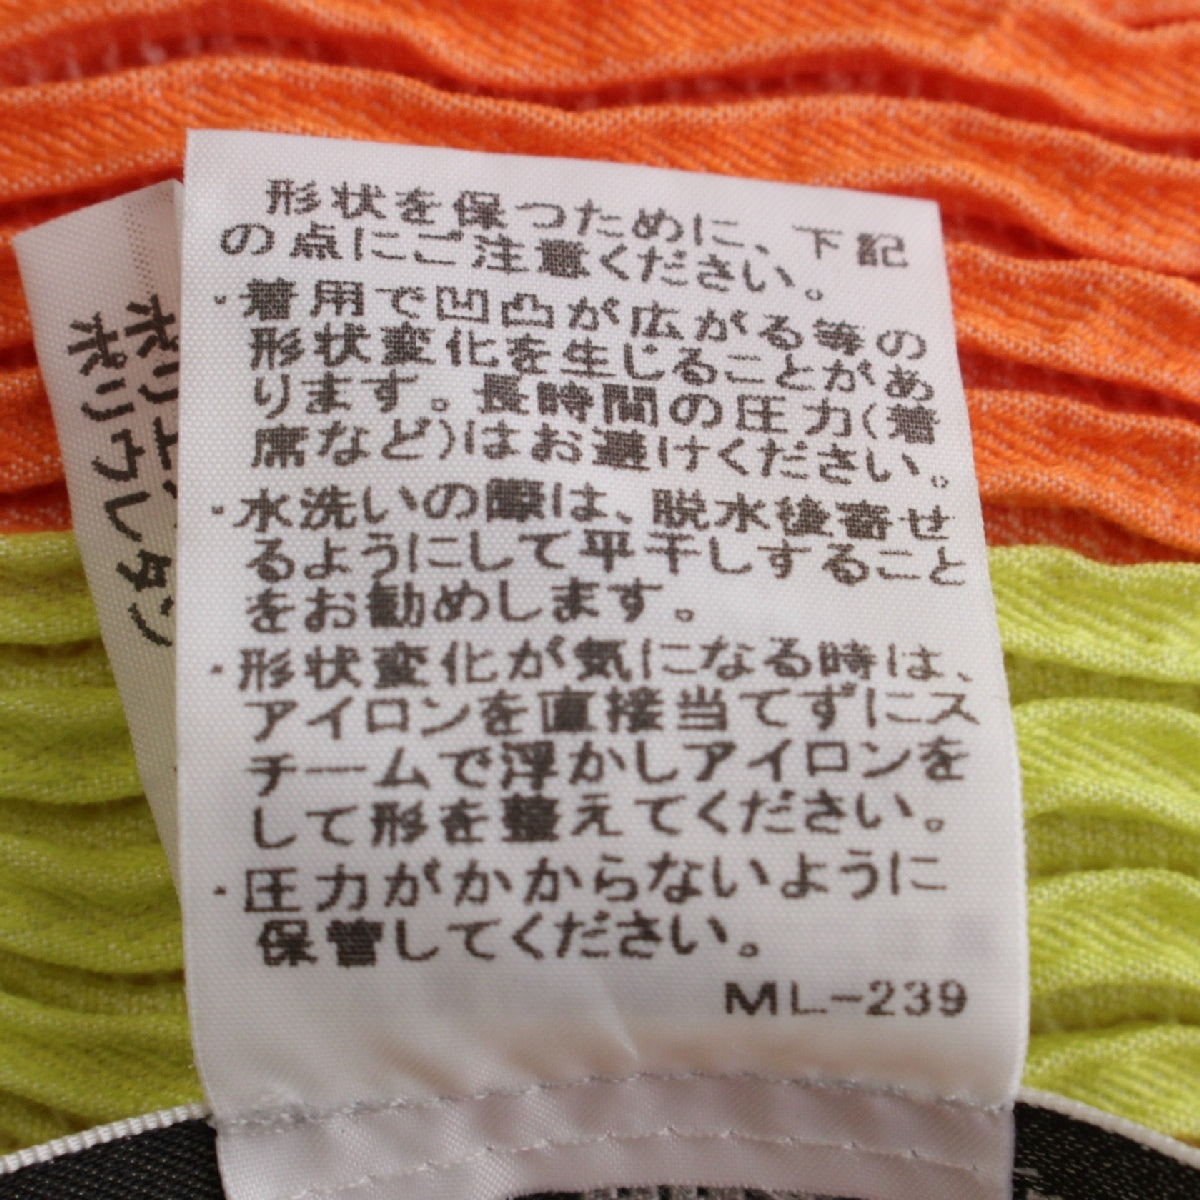 形状を保つために、下記
の点にご注意ください。
・着用で凹凸が広がる等の
形状変化を生じることがあ
ります。長時間の圧力(着
席など)はお避けください。
・水洗いの際は、脱水後寄せ
るようにして平干しすること
をお勧めします。
・形状変化が気になる時は、
アイロンを直接当てずにス
チームで浮かしアイロンを
して形を整えてください。
・圧力がかからないように
保管してください。
ML-239
ポリウレタン